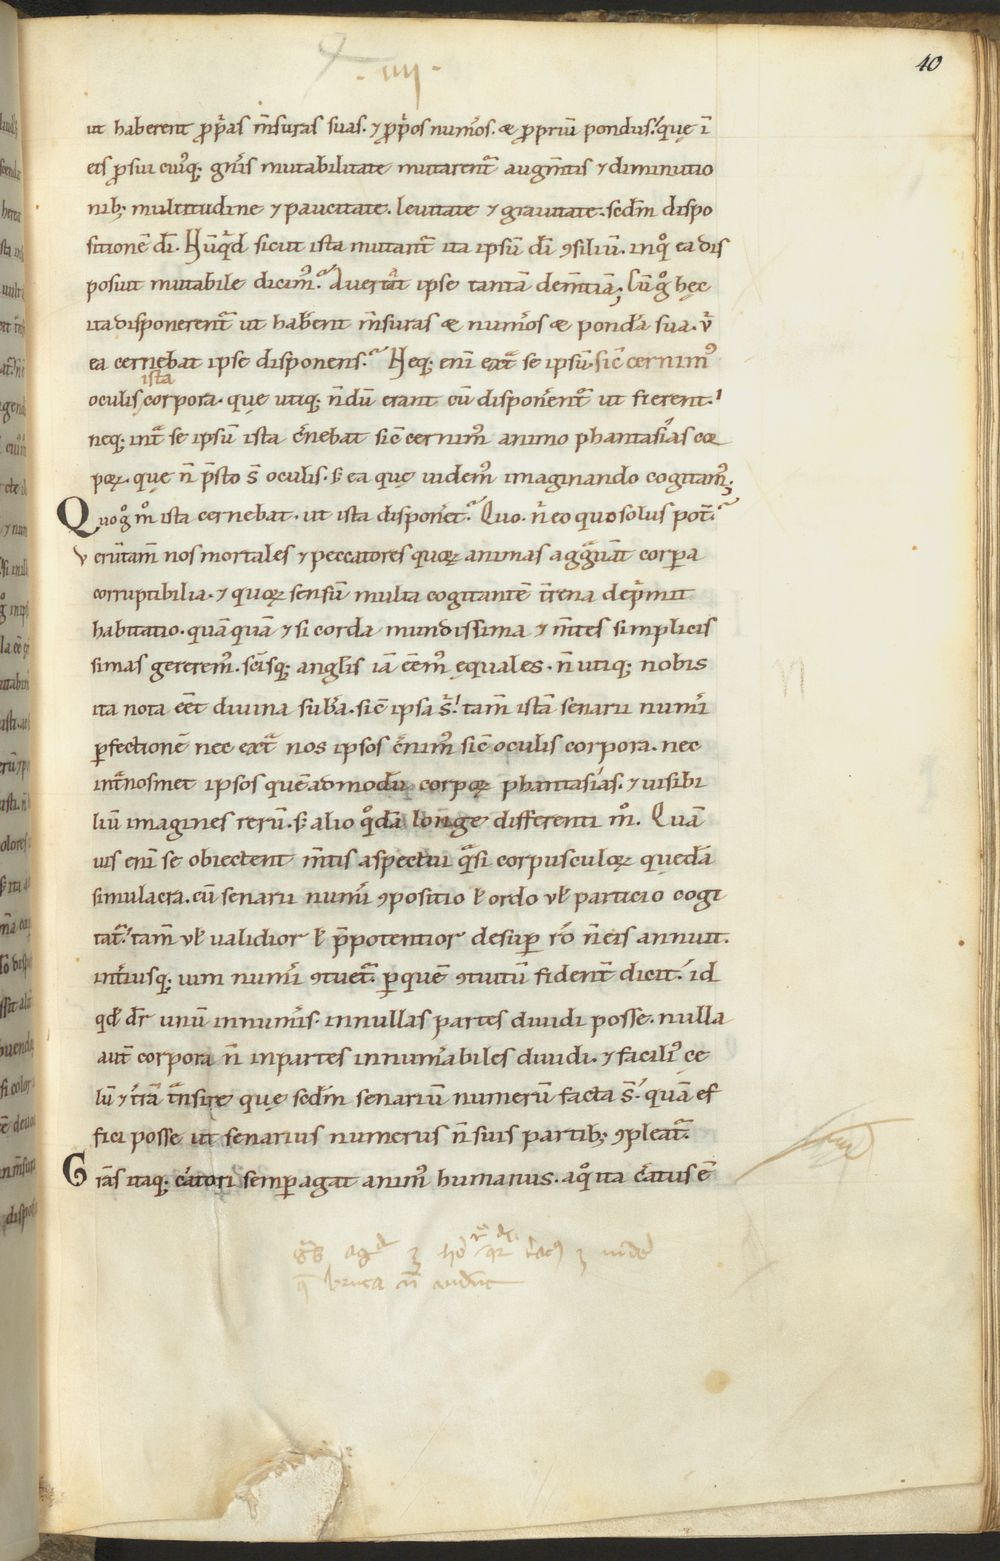 · iiii ·
40
ut haberent ꝓp̄as m̄suras suas. ⁊ ꝓp̄os num̄os. æ ꝓpriū pondus. quę ī
eis ꝓsui cuiꝰq; gn̄is mutabilitate mutarent᷑ augm̄tis ⁊ diminutio
nib; multitudine ⁊ paucitate. leuitate ⁊ grauitate. sedm̄ dispo
sitionē dī. Nū̄qͥd sicut ista mutant᷑ ita ipsū dī ꝯsiliū. inqͦ ea dis
posuit mutabile dicimꝰ. Auertat ipse tantā dem̄tiā; Cū gͦ hęc
ita disponerent᷑ ut hab̄ent m̄suras æ num̄os æ pond̄a sua. v̄
ea cernebat ipse disponens. Neq; eni ext᷑ se ipsū. sic̄ cernimꝰ
ista
oculis corpora. que utiq; n̄dū erant cū dispon̄ent᷑ ut fierent.
neq; int᷑ se ipsū ista c̄nebat sic̄ cernimꝰ animo phantasías cor
poꝝ. quę n̄ p̄sto s̄ oculis. s; ea quę uidemꝰ imaginando cogitamꝰ;
Quo gͦ mͦ ista cernebat. ut ista dispon̄et. Quo. n̄ eo quo solus pot̄.
verūtam̄ nos mortales ⁊ peccatores quoꝝ animas aggͣuāt corꝑa
corruptibilia. ⁊ quoꝝ sensū multa cogitantē t̄rena dep̄mit
habitatio. quāquā ⁊ si corda mundissima ⁊ m̄tes simplicis
simas gereremꝰ. sc̄isq; anglis iā eēmꝰ ęquales. n̄ utiq; nobis
ita nota eēt diuina subs̄a. sic̄ ipsa s̄. tam̄ istā senarii num̄i
ꝑfectionē nec ext᷑ nos ipsos c̄nimꝰ sic̄ oculis corpora. nec
int᷑nosmet ipsos quēadmodū corpoꝝ phantasías. ⁊ uisibi
liū imagines rerū. s; alio qͦdā longe differenti mͦ. Quā
uis eni se obiectent m̄tis aspectui qͣsi corpusculoꝝ quędā
simulacra. cū senarii num̄i ꝯpositio ł ordo uł particio cogi
tat᷑. tam̄ uł ualidior ł p̄potentior desuꝑ rō n̄ eis annuit.
int̄iusq; uim num̄i ꝯtuet᷑. ꝑquē ꝯtuitū fident̄ dicit. id
qd̄ dr̄ unū innum̄is. innullas partes diuidi posse. nulla
aut̄ corpora n̄ inpartes innum̄abiles diuidi. ⁊ faciliꝰ cę
lū ⁊ t̄rā t᷑nsire quę sedm̄ senariū numerū facta s̄. quā ef
fici posse ut senarius numerus n̄ suis partib; ꝯpleat᷑.
Gras̄ itaq; c̄atori semꝑ agat animꝰ humanus. aqͦ ita c̄atus ē